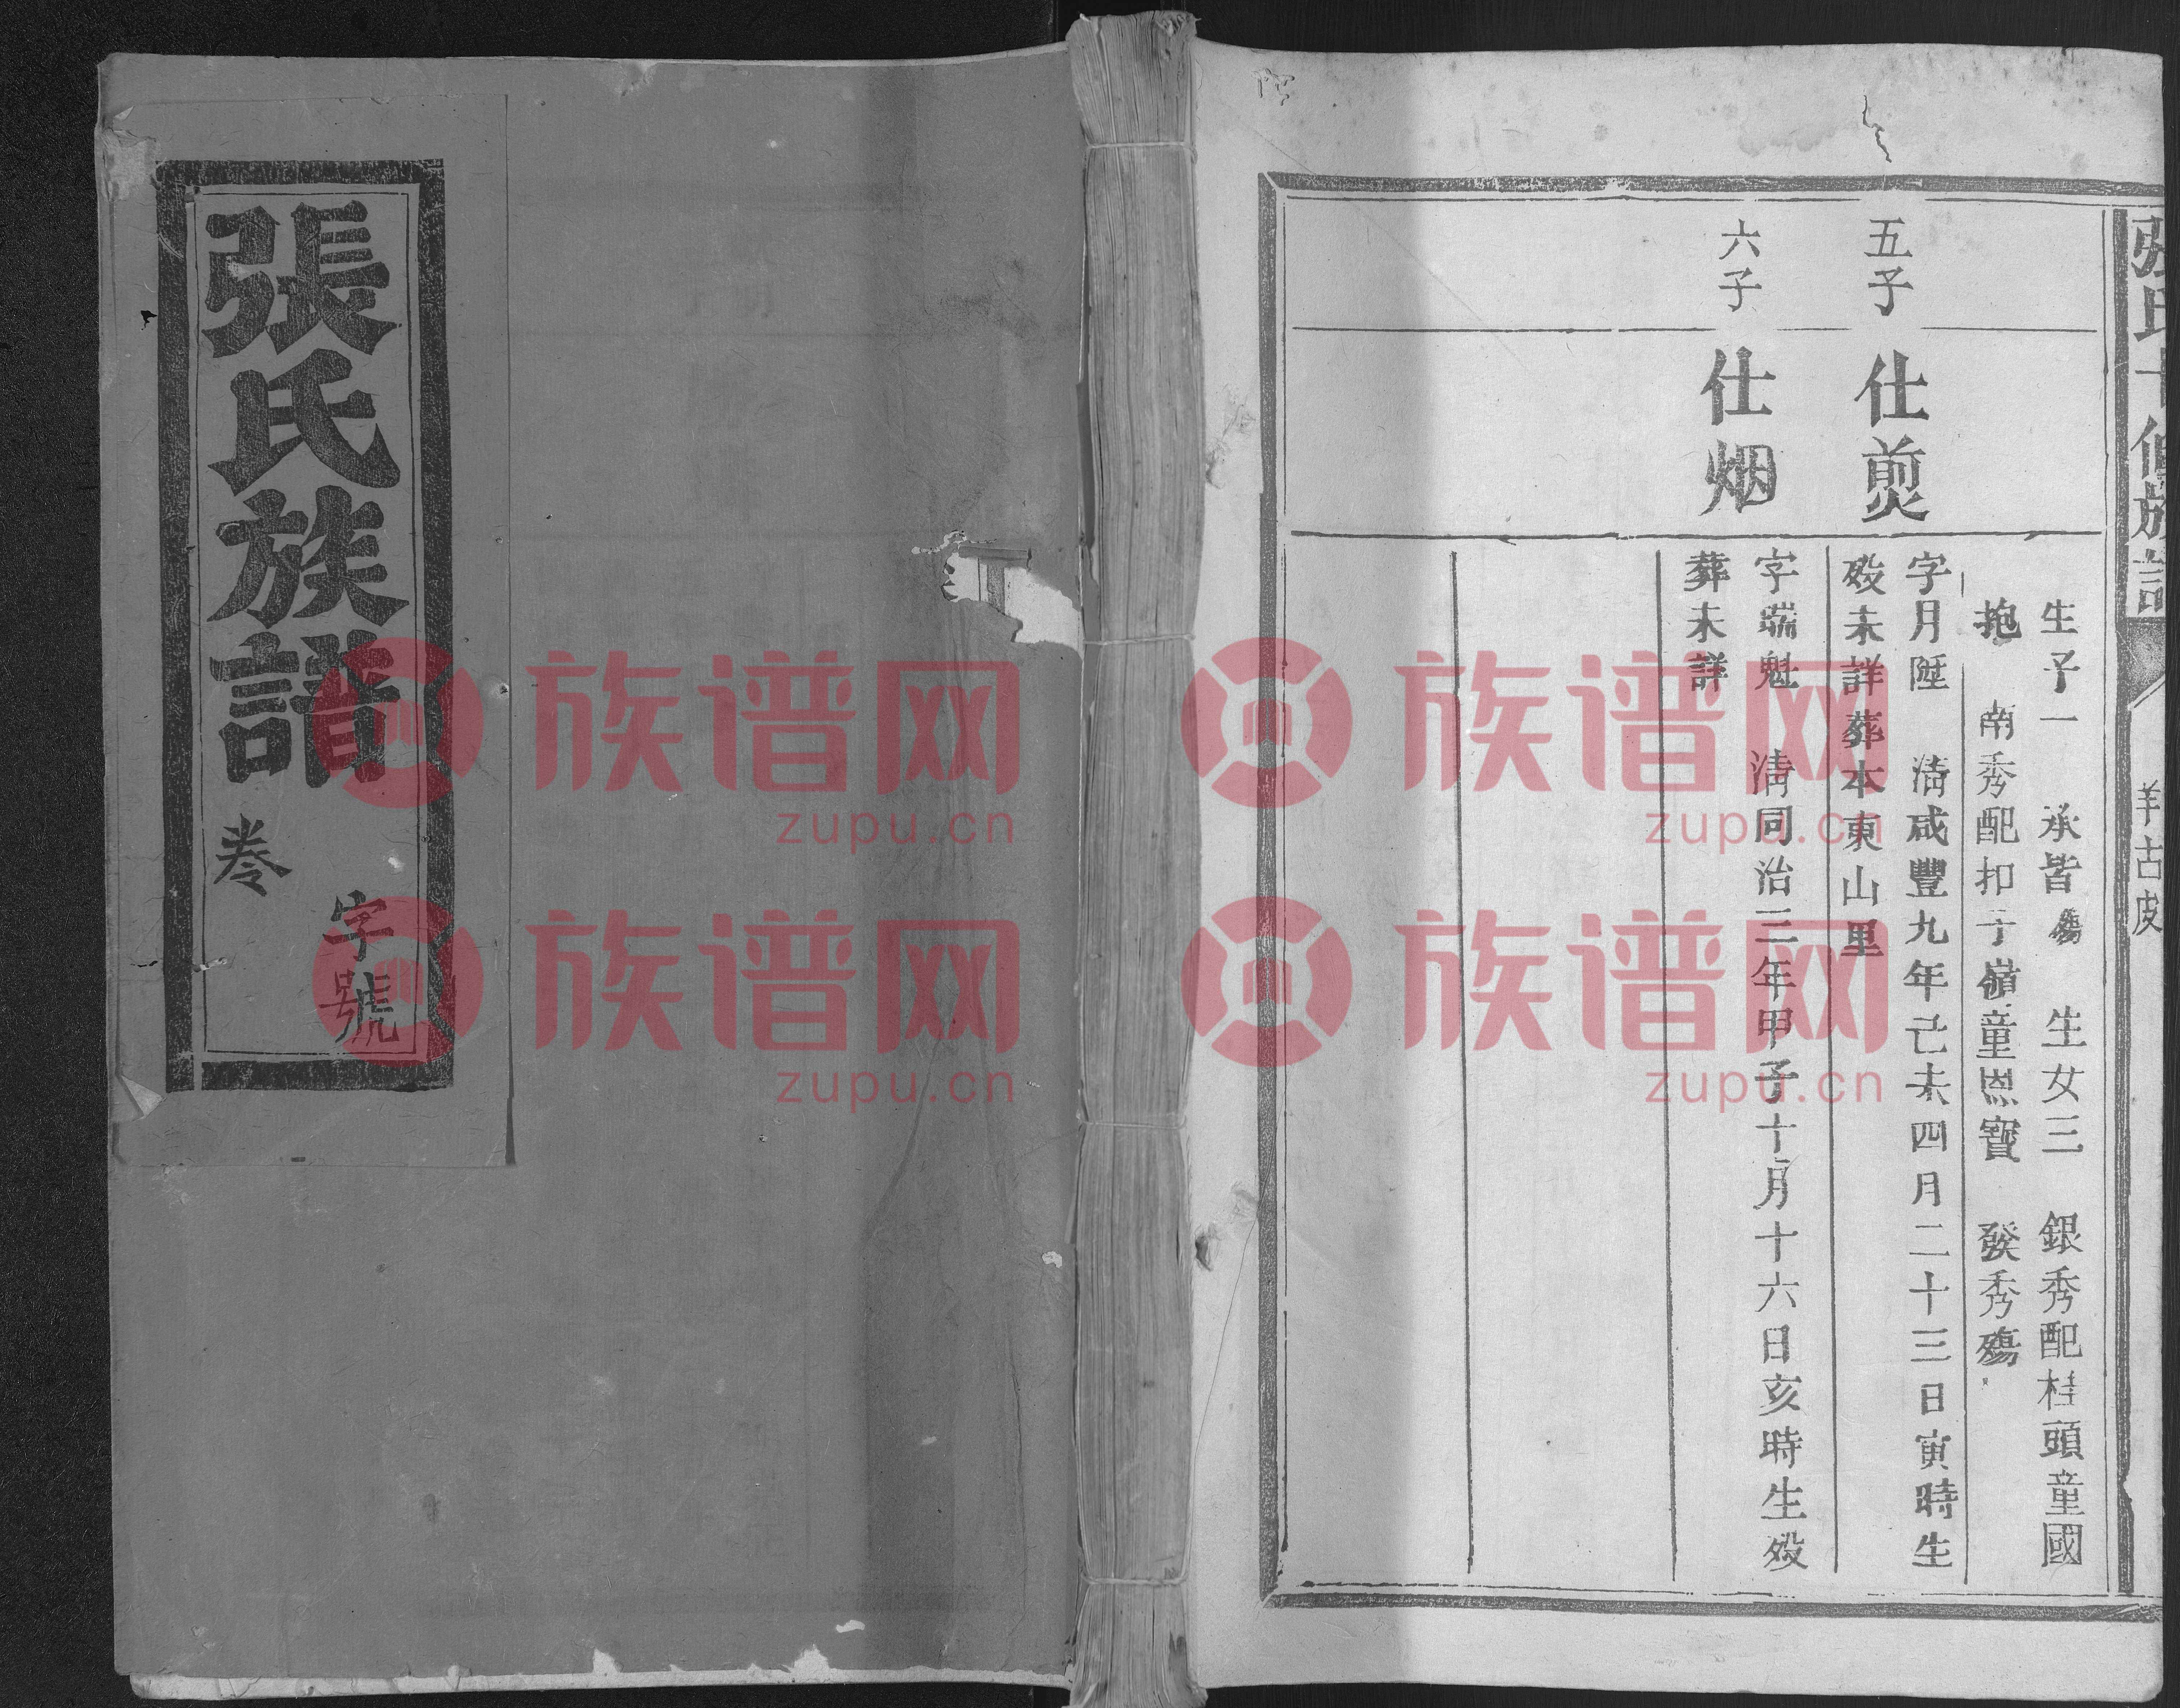 張氏十修族譜
羊古皮
生子一 承皆殤 生女三 銀秀配桂頭童國
抱 南秀配扣子嶺童恩寶 發秀殤
五子
仕煛
字月陞 清咸豐九年己未四月二十三日寅時生
殁未詳葬本東山里
六子
仕烟
字端魁 清同治三年甲子十月十六日亥時生殁
葬未詳
張氏族譜
卷
字號
族谱网
zupu.cn
族谱网
zupu.cn
族谱网
zupu.cn
族谱网
zupu.cn